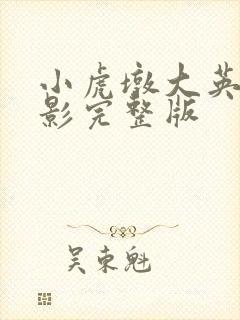 小虎墩大英
影完整版
吴东魁